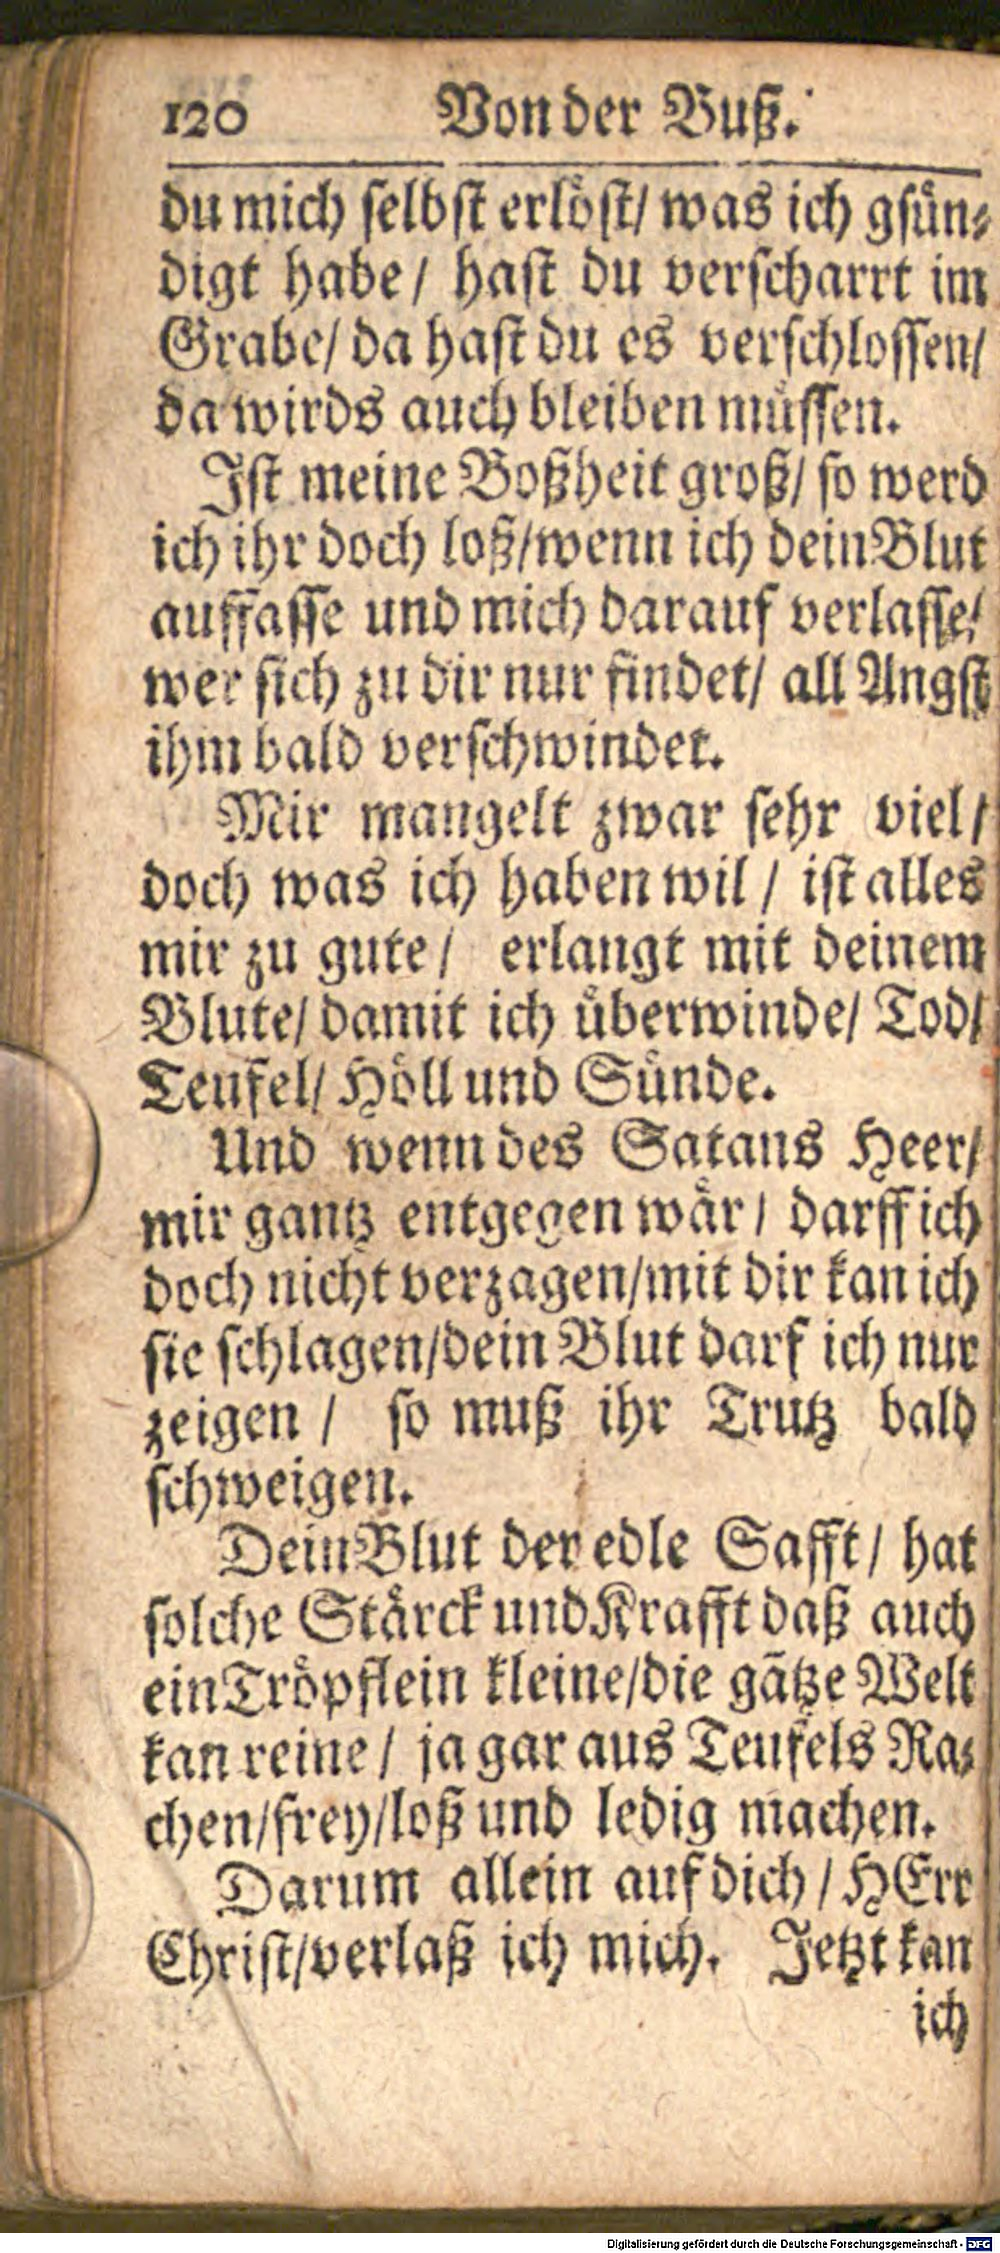 120 Von der Buß.
du mich selbst erlöst/ was ich gsün⸗
digt habe/ hast du verscharrt im
Grabe/ da hast du es verschlossen/
da wirds auch bleiben müssen.
Ist meine Boßheit groß/ so werd
ich ihr doch loß/ wenn ich dein Blut
auffasse und mich darauf verlasse/
wer sich zu dir nur findet/ all Angst
ihm bald verschwindet.
Mir mangelt zwar sehr viel/
doch was ich haben wil/ ist alles
mir zu gute/ erlangt mit deinem
Blute/ damit ich überwinde/ Tod/
Teufel/ Höll und Sünde.
Und wenn des Satans Heer/
mir gantz entgegen wär/ darff ich
doch nicht verzagen/ mit dir kan ich
sie schlagen/ dein Blut darf ich nur
zeigen/ so muß ihr Trutz bald
schweigen.
Dein Blut der edle Safft/ hat
solche Stärck und Krafft daß auch
ein Tröpflein kleine/ die gãtze Welt
kan reine/ ja gar aus Teufels Ra⸗
chen/ frey/ loß und ledig machen.
Darum allein auf dich/ HErr
Christ/ verlaß ich mich. Jetzt kan
ich
Digitalisierung gefördert durch die Deutsche Forschungsgemeinschaft - DFG